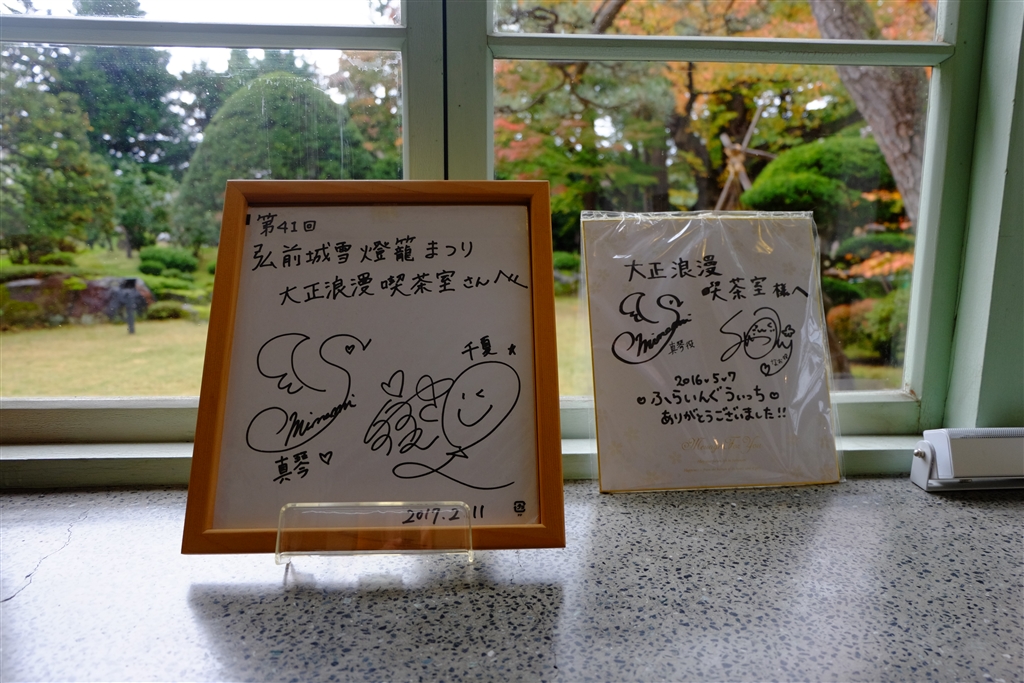 第41回
弘前城雪燈籠まつり
大正浪漫喫茶室さんへ
Minami
真琴♡
千夏★
2017.2.11
大正浪漫
喫茶室様へ
Minami
真琴役
2016.5.7
ふらいんぐうぃっち
ありがとうございました!!